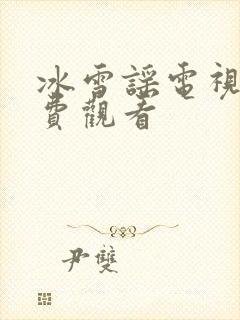 冰雪謠電視
費觀看
尹雙